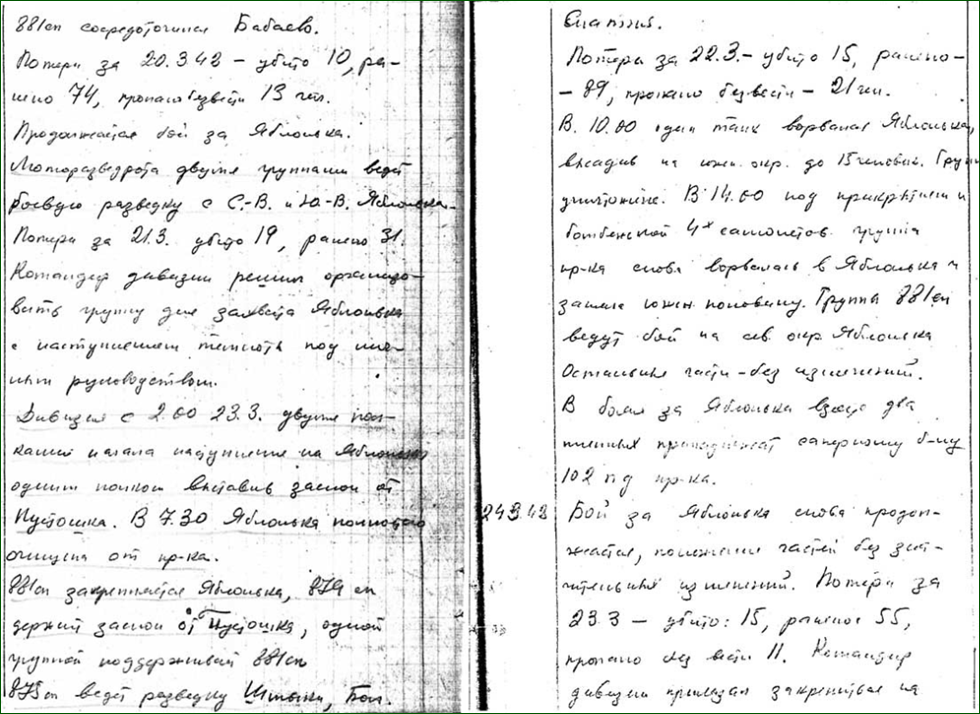 881сп сосредоточился Бабаево.
Потери за 20.3.42 – убито 10, ра-
нено 74, пропало без вести 13 чел.
Продолжается бой за Яблонька.
Моторазведрота двумя группами ведет
боевую разведку с С.-В. и Ю.-В. Яблонька.
Потери за 21.3. убито 19, ранено 31.
Командир дивизии решил организо-
вать группу для захвата Яблонька
с наступлением темноты под
руководством.
Дивизия с 2.00 23.3. двумя пол-
ками начала наступление на Яблонька
одним полком выставив заслон от
Пустошка. В 7.30 Яблонька полностью
очищена от пр-ка.
881сп закрепляется Яблонька, 879 сп
держит заслон от Пустошка, одной
группой поддерживает 881сп
875сп ведет разведку Бол.
Потери за 22.3. – убито 15, ранено –
– 89, пропало без вести – 21 чел.
В 10.00 один танк ворвался Яблонька,
высадив на южн. окр. до 15 человек.
уничтожена. В 14.00 под прикрытием и
бомбежкой 4х самолетов группа
пр-ка снова ворвалась в Яблонька и
заняла южн. половину. Группа 881сп
ведут бой на сев. окр Яблонька
Остальные части – без изменений.
В боях за Яблонька взято два
пленных принадлежат саперному б-ну
102 пд пр-ка.
24.3.42 Бой за Яблонька снова продол-
жается, положение частей без зна-
чительных изменений. Потери за
23.3 – убито: 15, ранено 55,
пропало без вести 11. Командир
дивизии приказал закрепиться на